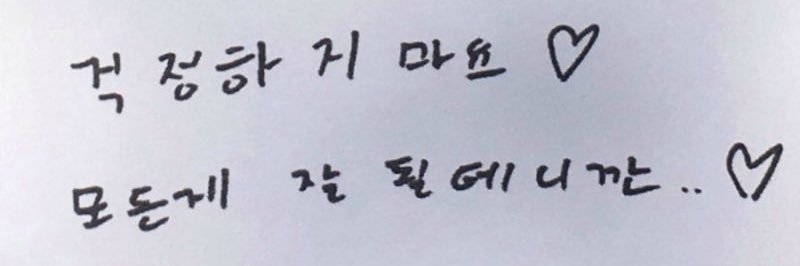 걱정하지 마요 ♡
모든게 잘 될테니깐.. ♡